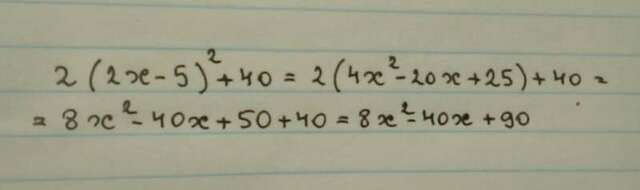 2(2x-5)²+40 = 2(4x²-20x+25)+40 =
= 8x²-40x+50+40 = 8x²-40x+90